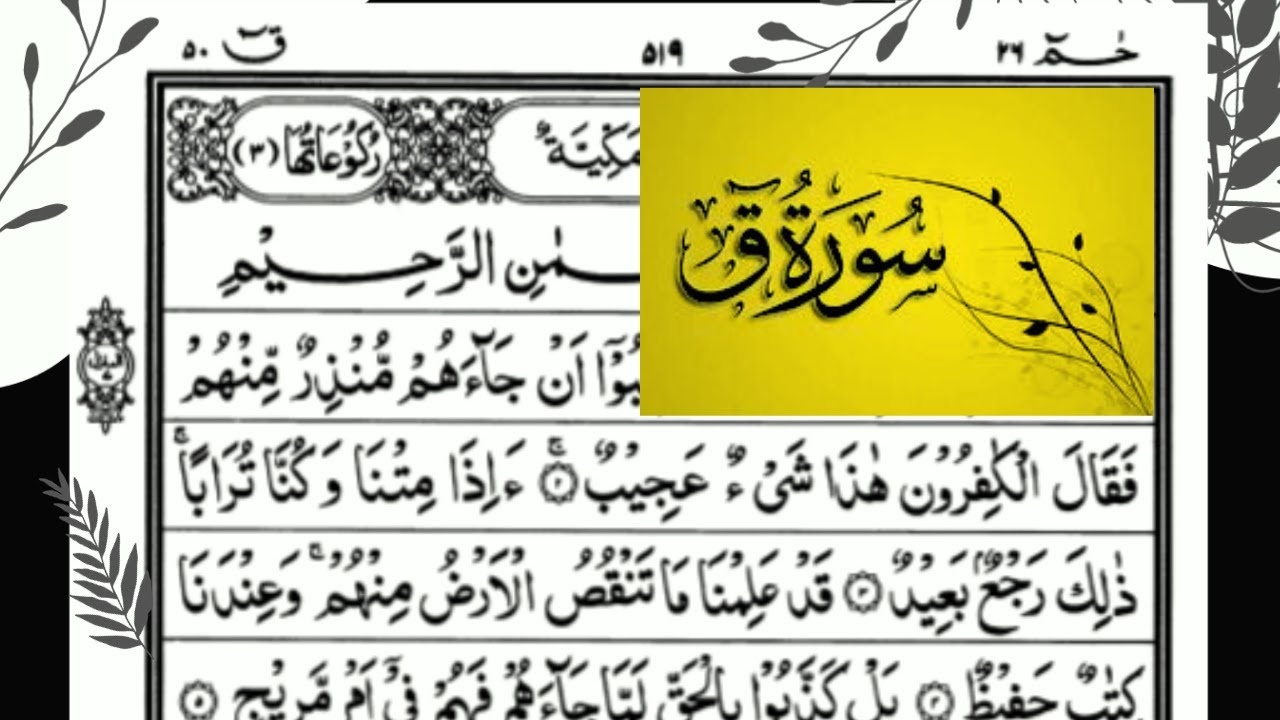 حٰمٓ ٢٦ ٥١٩ قٓ ٥٠
مَكِّيَّةٌ رُكُوْعَاتُهَا (٣)
سُورَةُ قٓ
الرَّحِيْمِ
اَنْ جَآءَهُمْ مُّنْذِرٌ مِّنْهُمْ
فَقَالَ الْكٰفِرُوْنَ هٰذَا شَىْءٌ عَجِيْبٌ ۚ‏﴿٢﴾ ءَاِذَا مِتْنَا وَكُنَّا تُرَابًا ۚ
ذٰلِكَ رَجْعٌۢ بَعِيْدٌ ﴿٣﴾ قَدْ عَلِمْنَا مَا تَنْقُصُ الْاَرْضُ مِنْهُمْ ۚ وَعِنْدَنَا
كِتٰبٌ حَفِيْظٌ ﴿٤﴾ بَلْ كَذَّبُوْا بِالْحَقِّ لَمَّا جَآءَهُمْ فَهُمْ فِىْٓ اَمْرٍ مَّرِيْجٍ ﴿٥﴾